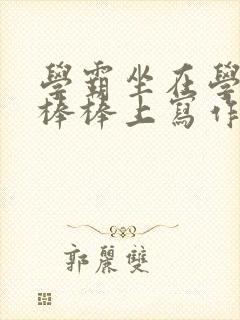 學霸坐在學
棒棒上寫作
郭麗雙